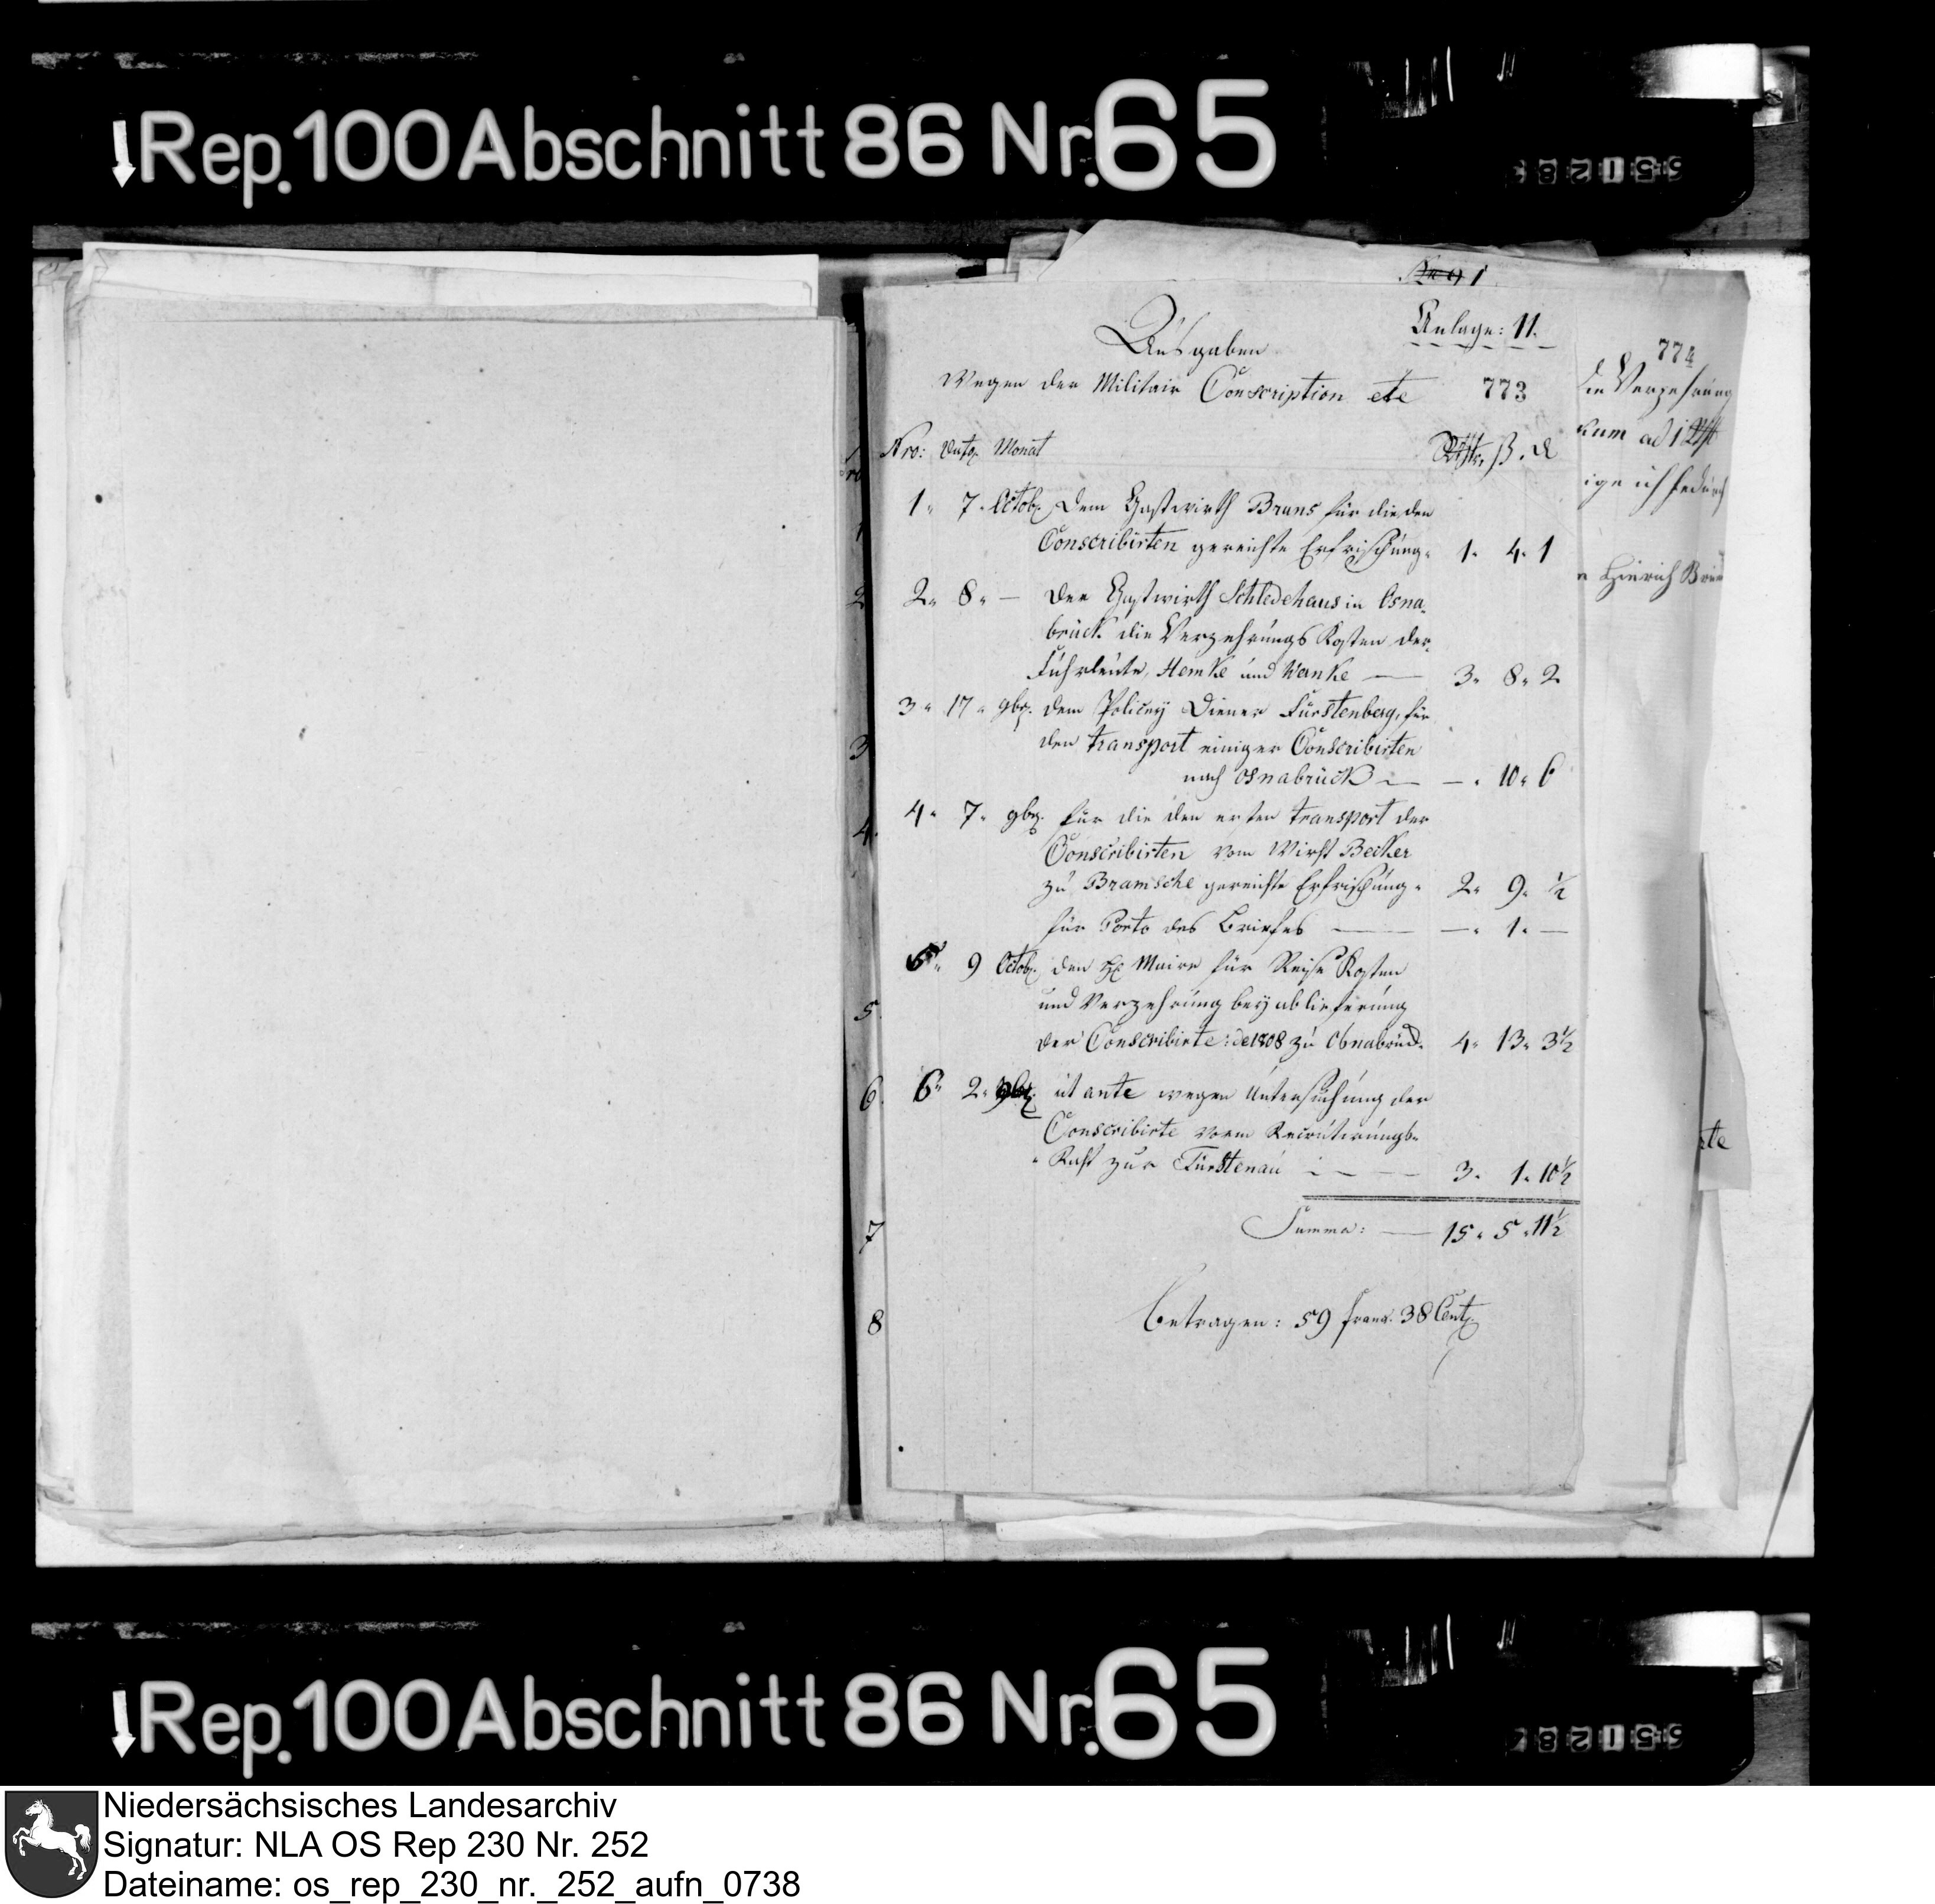 Rep. 100 Abschnitt 86 Nr. 65
Anlage: 11.
Ausgaben
wegen der Militair Conscription etc
773
Nro: Datg. Monat Rthlr. ß. d
1. 7. Octobr. Dem Gastwirth Bruns für die den
Conscribirten gereichte Erfrischung. 1. 4. 1
2. 8. — Der Gastwirth Schledehaus in Osna-
brück die Verzehrungs Kosten der
Fuhrleute, Hemke und Wanke — 3. 8. 2
3. 17. 9br. dem Policey Diener Fürstenberg, für
den transport einiger Conscribirten
nach Osnabrück — —. 10. 6
4. 7. 9br. für die den ersten transport der
Conscribirten vom Wirth Becker
zu Bramsche gereichte Erfrischung. 2. 9. ½
für Porto des Briefes — —. 1. —
5. 9 Octobr. den H. Maire für Reise Kosten
und Verzehrung bey ablieferung
der Conscribirte: de 1808 zu Osnabrück. 4. 13. 3½
6. 2. 9br. ut ante wegen Untersuchung der
Conscribirte vorm Recrutirungs-
Rath zur Fürstenau — 3. 1. 10½
Summa: — 15. 5. 11½
Betragen: 59 franc. 38 Cent.
774
die Verzehrung
kum ad 1 Rth
ige ich hedurch
n Hinrich
1
2
3
4.
5.
6.
7
8
Rep. 100 Abschnitt 86 Nr. 65
Niedersächsisches Landesarchiv
Signatur: NLA OS Rep 230 Nr. 252
Dateiname: os_rep_230_nr._252_aufn_0738